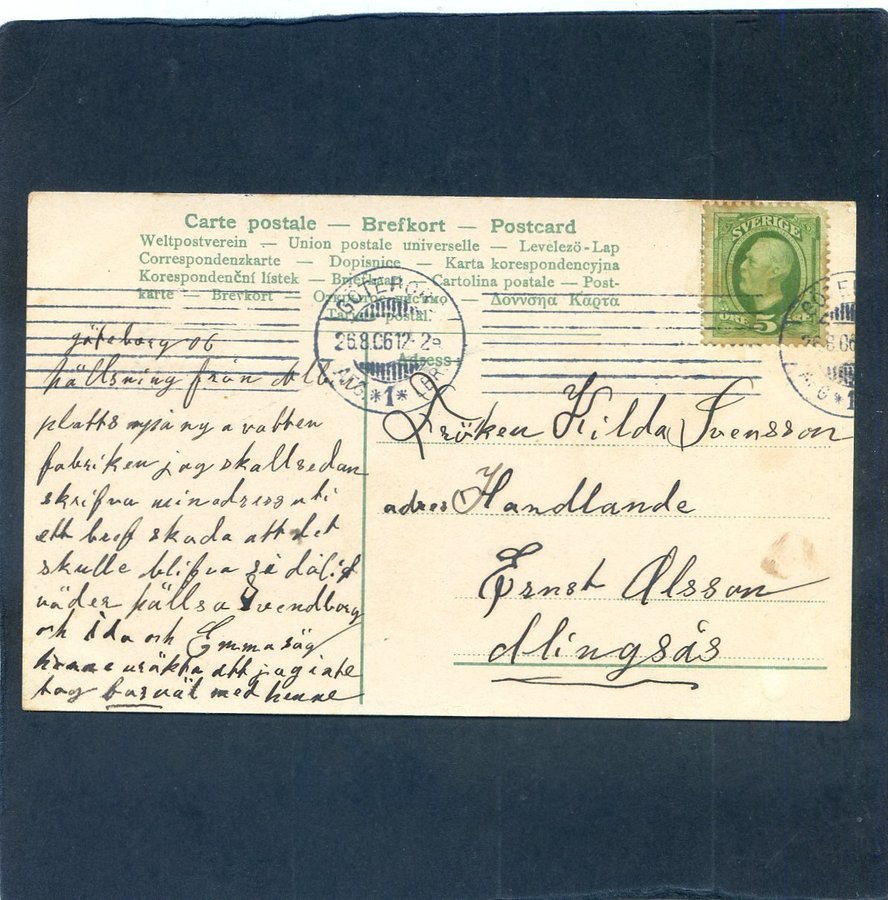 Carte postale — Brefkort — Postcard
Weltpostverein — Union postale universelle — Levelezö-Lap
Correspondenzkarte — Dopisnice — Karta korespondencyjna
Korespondenční lístek — Briefkaart — Cartolina postale — Post-
karte — Brevkort — — Δοννσηα Καρτα
Tarjeta postal.
SVERIGE
ÖRE 5
GÖTEBORG
26.8.06 12-2
*1*
26.8.06
Adress
göteborg 06
hällsning från
platts nya vatten
fabriken jag skall sedan
skrifva min adress uti
ett bref skada att det
skulle blifva så dåligt
väder hällsa Svendborg
och Ida och Emma säg
henne ursäkta att jag inte
tog farväl med henne
Fröken Hilda Svensson
adres Handlande
Ernst Olsson
Alingsås